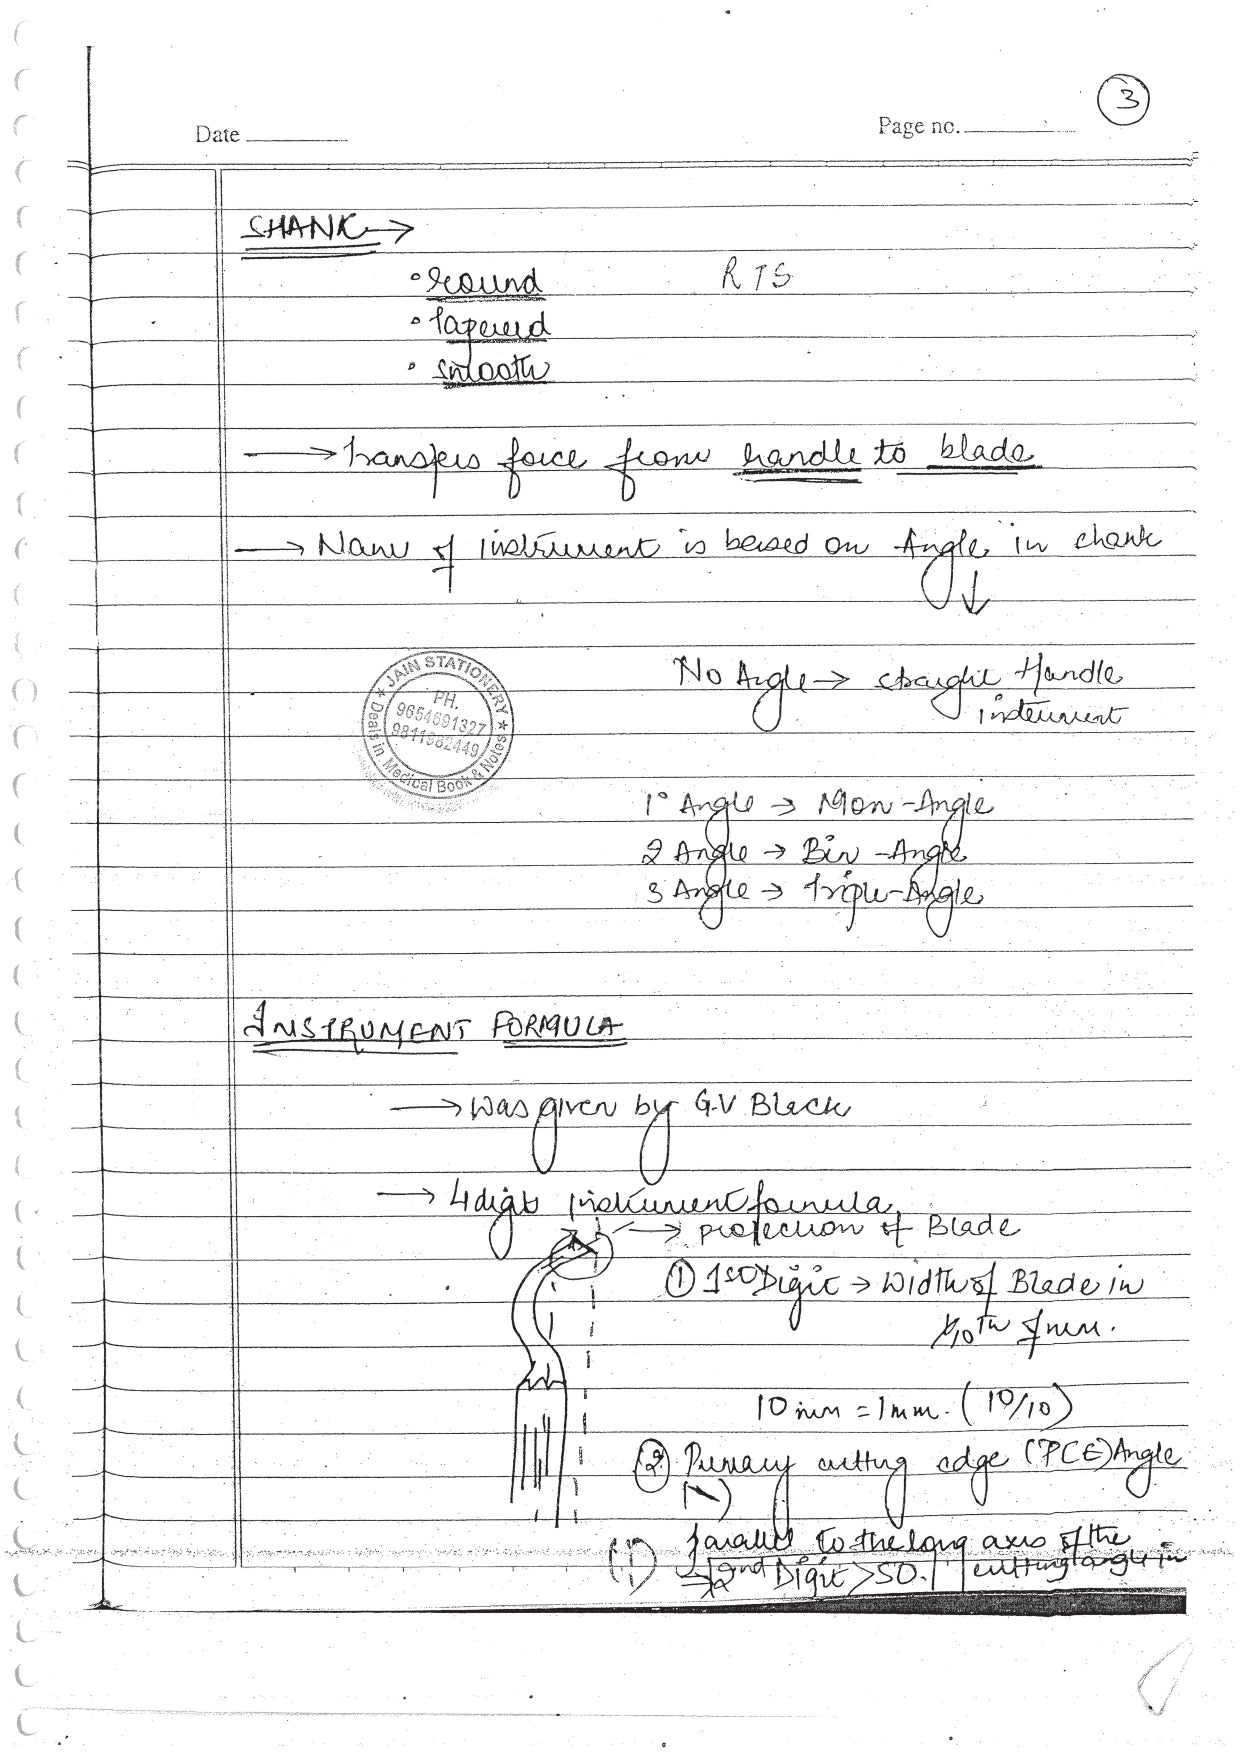 3
Date
Page no.
SHANK →
• round RTS
• Tapered
• smooth
→ Transfers force from handle to blade
→ Name of instrument is based on Angle in shank
↓
No Angle → straight Handle
instrument
JAIN STATIONERY
PH.
9654691327
9811982449
Deals in Medical Book & Notes
1° Angle → Mon-Angle
2 Angle → Bin-Angle
3 Angle → Triple-Angle
INSTRUMENT FORMULA
→ Was given by G.V Black
→ 4 digit Instrument formula
→ projection of Blade
① 1st Digit → Width of Blade in
1/10th of mm.
10 mm = 1 mm. (10/10)
② Primary cutting edge (PCE) Angle
(i) parallel to the long axis of the
2nd Digit > 50. cutting angle in